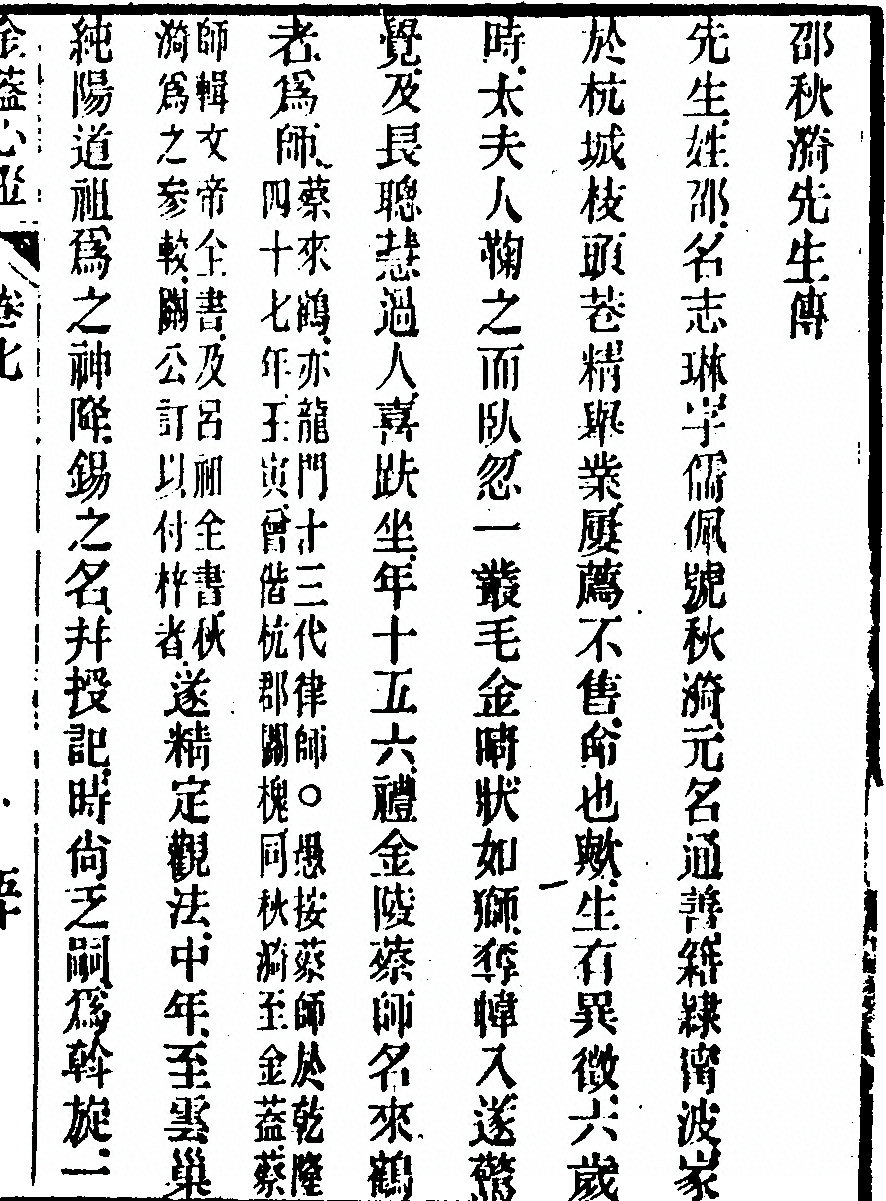 邵秋漪先生傳
先生姓邵名志琳字儒佩號秋漪元名通善籍隸甯波家
於杭城枝頭巷精舉業屢薦不售命也歟生有異徵六歲
時太夫人鞠之而臥忽一叢毛金睛狀如獅奪幃入遂驚
覺及長聰慧過人喜趺坐年十五六禮金陵蔡師名來鶴
者爲師
蔡來鶴亦龍門十三代律師〇愚按蔡師於乾隆
四十七年壬寅曾偕杭郡關槐同秋漪至金蓋蔡
師輯文帝全書及呂祖全書秋
漪爲之參較關公訂以付梓者
遂精定觀法中年至雲巢
純陽道祖爲之神降錫之名幷授記時尙乏嗣爲斡旋一
金蓋心燈
卷七
五十